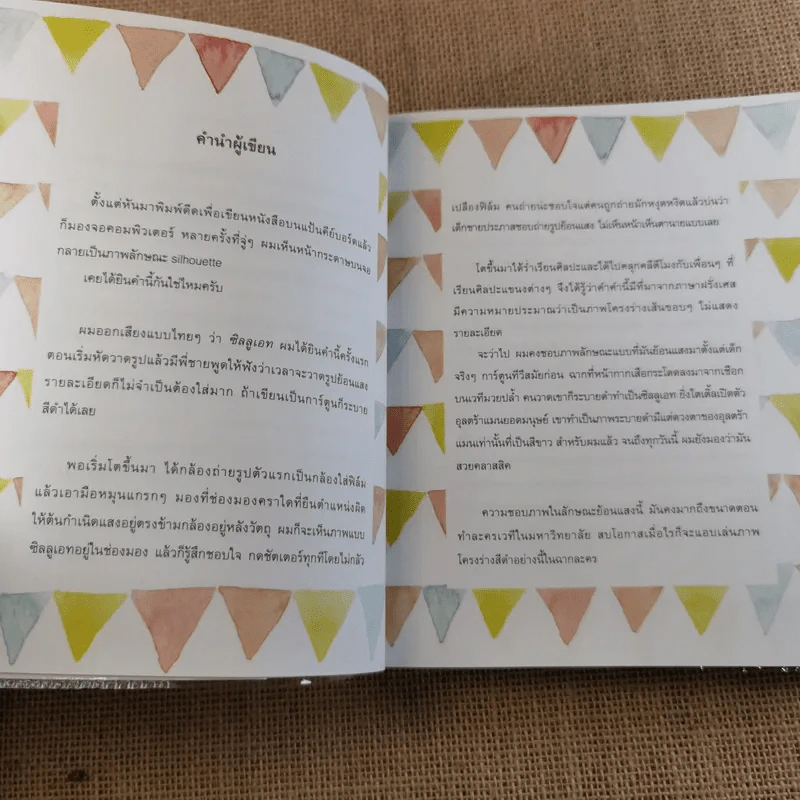 คำนำผู้เขียน
ตั้งแต่หันมาพิมพ์ดีดเพื่อเขียนหนังสือบนแป้นคีย์บอร์ดแล้ว
ก็มองจอคอมพิวเตอร์ หลายครั้งที่จู่ๆ ผมเห็นหน้ากระดาษบนจอ
กลายเป็นภาพลักษณะ silhouette
เคยได้ยินคำนี้กันใช่ไหมครับ
ผมออกเสียงแบบไทยๆ ว่า ซิลลูเอท ผมได้ยินคำนี้ครั้งแรก
ตอนเริ่มหัดวาดรูปแล้วมีพี่ชายพูดให้ฟังว่าเวลาจะวาดรูปย้อนแสง
รายละเอียดก็ไม่จำเป็นต้องใส่มาก ถ้าเขียนเป็นการ์ตูนก็ระบาย
สีดำได้เลย
พอเริ่มโตขึ้นมา ได้กล้องถ่ายรูปตัวแรกเป็นกล้องใส่ฟิล์ม
แล้วเอามือหมุนแกรกๆ มองที่ช่องมองคราใดที่ยืนตำแหน่งผิด
ให้ต้นกำเนิดแสงอยู่ตรงข้ามกล้องอยู่หลังวัตถุ ผมก็จะเห็นภาพแบบ
ซิลลูเอทอยู่ในช่องมอง แล้วก็รู้สึกชอบใจ กดชัตเตอร์ทุกทีโดยไม่กลัว
เปลืองฟิล์ม คนถ่ายน่ะชอบใจแต่คนถูกถ่ายมักหงุดหงิดแล้วบ่นว่า
เด็กชายประภาสชอบถ่ายรูปย้อนแสง ไม่เห็นหน้าเห็นตานายแบบเลย
โตขึ้นมาได้ร่ำเรียนศิลปะและได้ไปคลุกคลีตีโมงกับเพื่อนๆ ที่
เรียนศิลปะแขนงต่างๆ จึงได้รู้ว่าคำคำนี้มีที่มาจากภาษาฝรั่งเศส
มีความหมายประมาณว่าเป็นภาพโครงร่างเส้นขอบๆ ไม่แสดง
รายละเอียด
จะว่าไป ผมคงชอบภาพลักษณะแบบที่มันย้อนแสงมาตั้งแต่เด็ก
จริงๆ การ์ตูนทีวีสมัยก่อน ฉากที่หน้ากากเสือกระโดดลงมาจากเชือก
บนเวทีมวยปล้ำ คนวาดเขาก็ระบายดำทำเป็นซิลลูเอท ยิ่งไตเติ้ลเปิดตัว
อุลตร้าแมนยอดมนุษย์ เขาทำเป็นภาพระบายดำมีแต่ดวงตาของอุลตร้า
แมนเท่านั้นที่เป็นสีขาว สำหรับผมแล้ว จนถึงทุกวันนี้ ผมยังมองว่ามัน
สวยคลาสสิค
ความชอบภาพในลักษณะย้อนแสงนี้ มันคงมากถึงขนาดตอน
ทำละครเวทีในมหาวิทยาลัย สบโอกาสเมื่อไรก็จะแอบเล่นภาพ
โครงร่างสีดำอย่างนี้ในฉากละคร